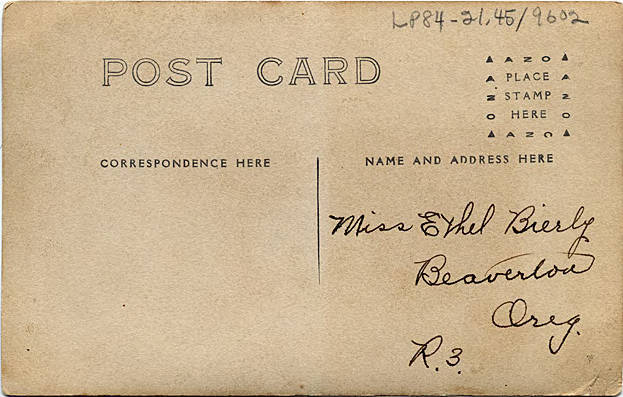 LP84-21.45/9602
POST CARD
AZO
PLACE
STAMP
HERE
AZO
AZO
AZO
CORRESPONDENCE HERE
NAME AND ADDRESS HERE
Miss Ethel Bierly
Beaverton
Oreg.
R.3.